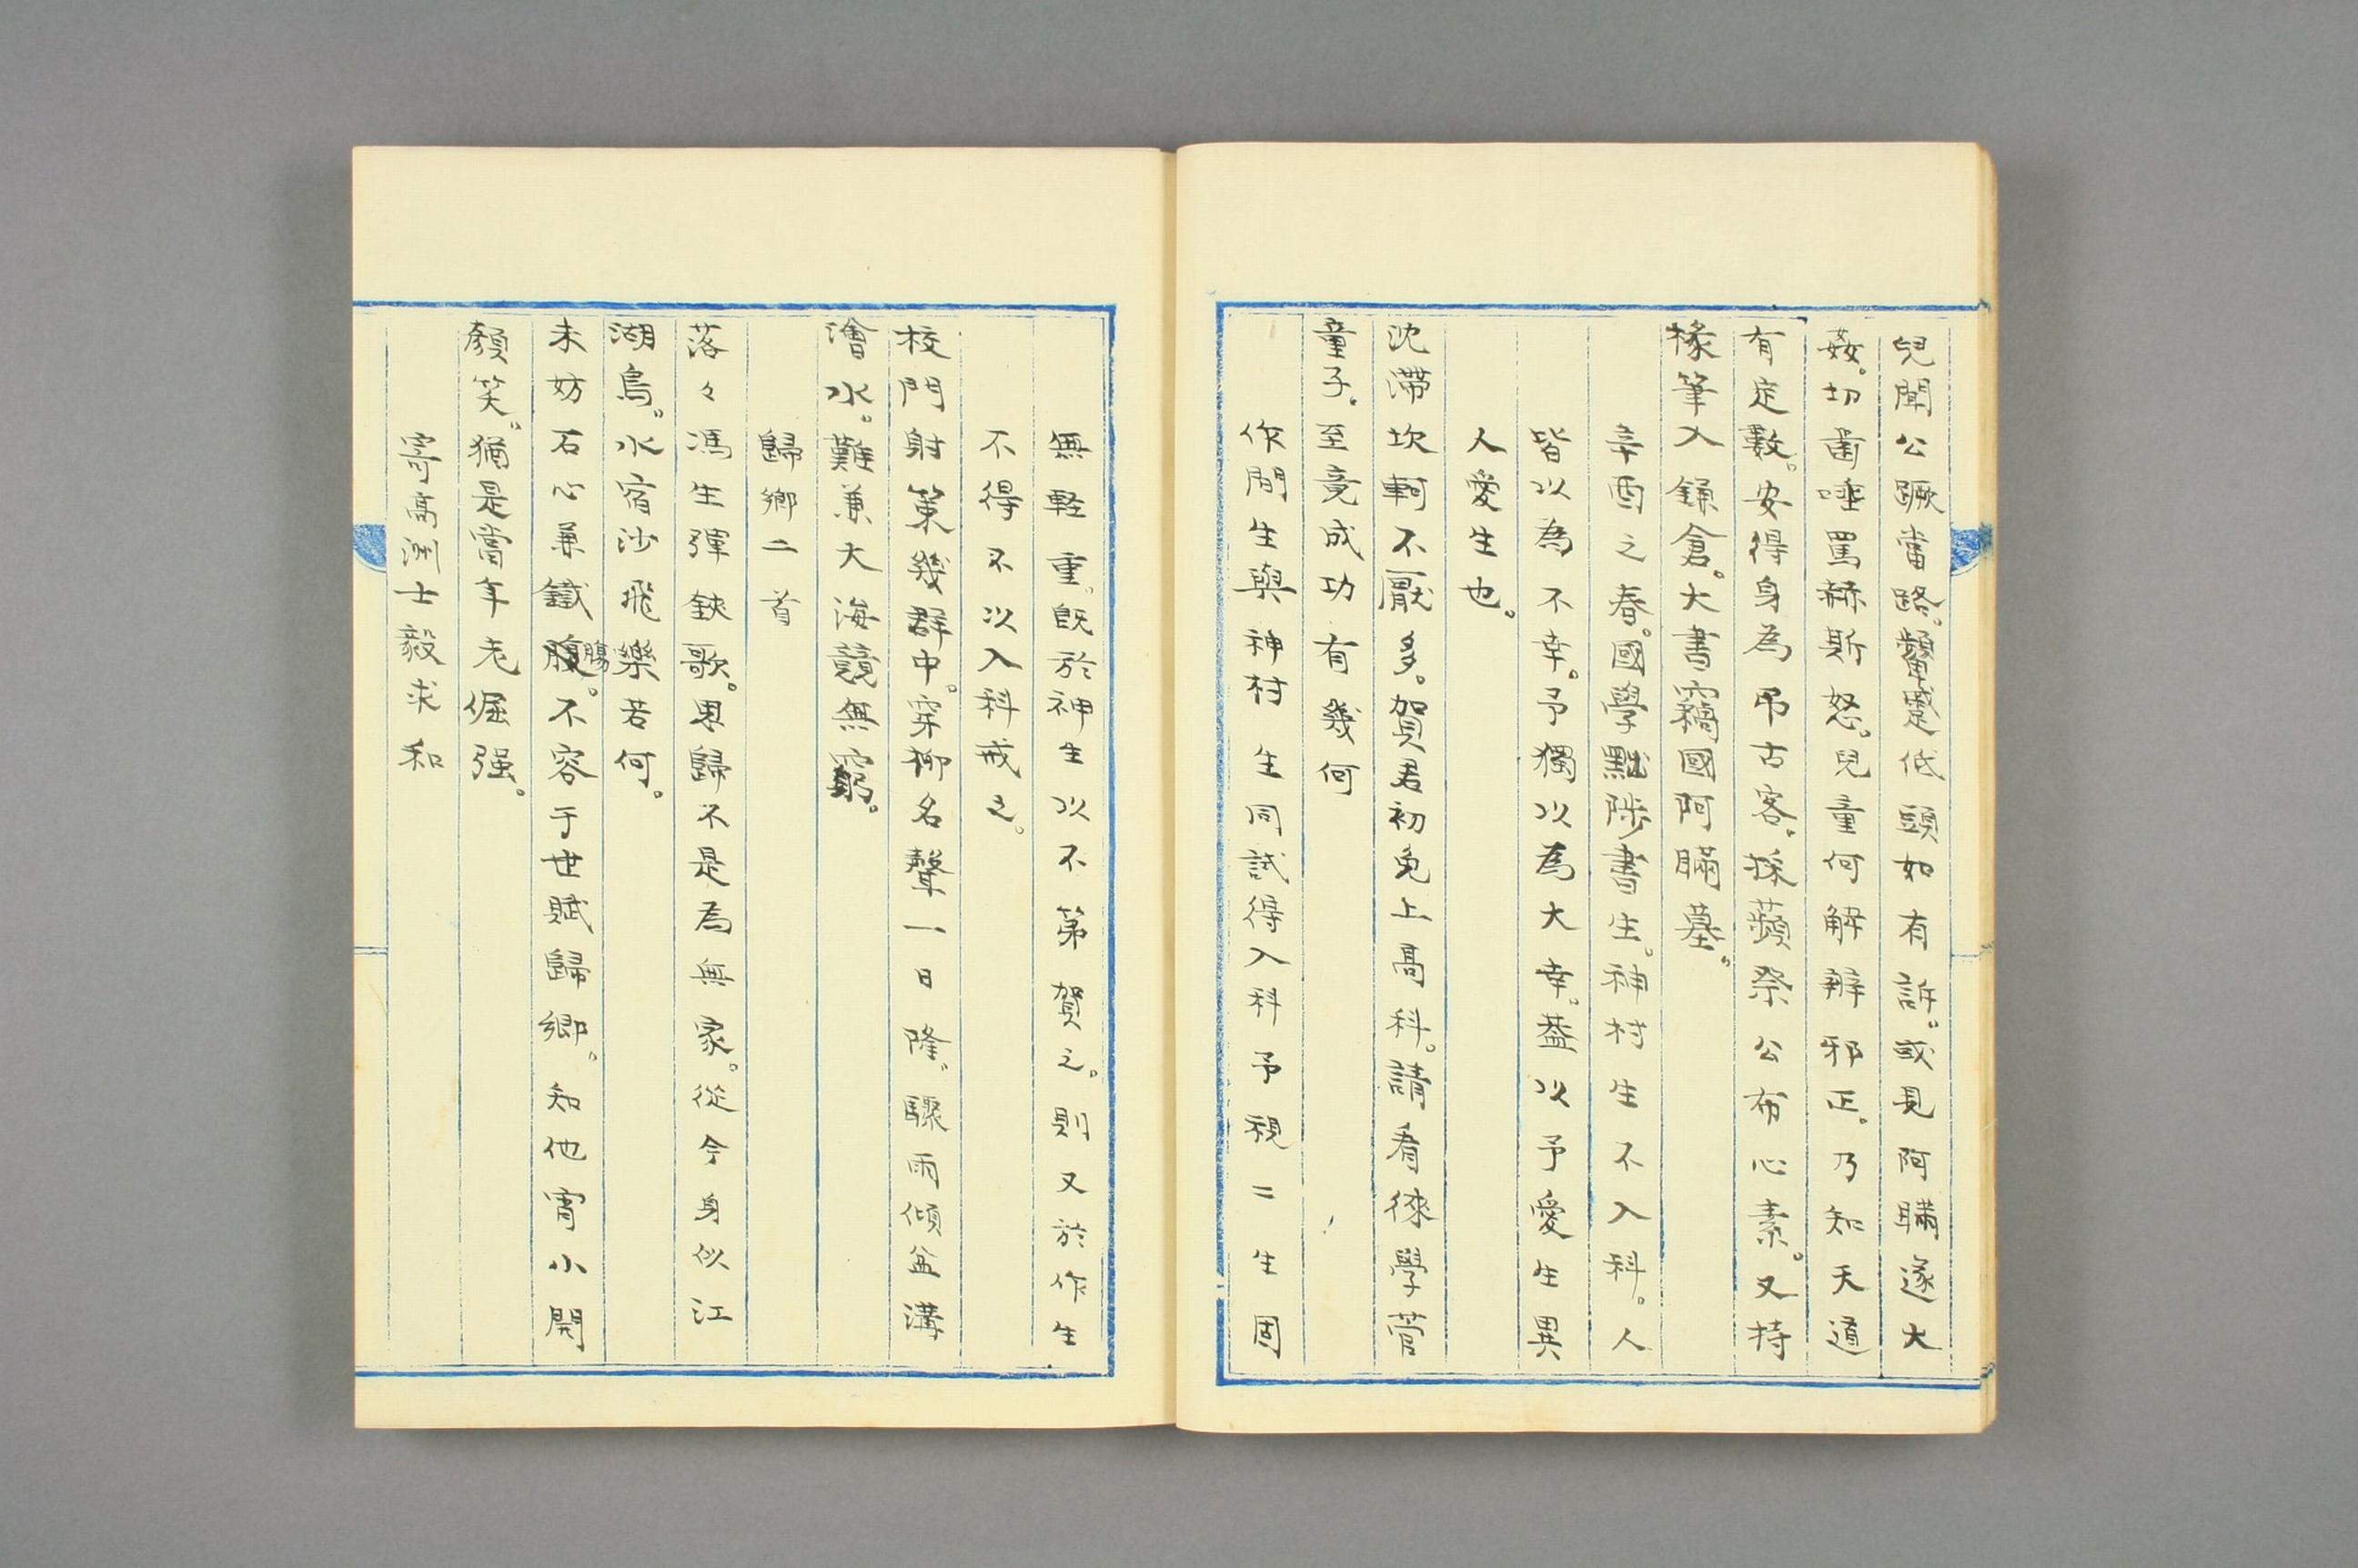 兒聞公蹶當路。顰蹙低頭如有訴。或見阿瞞遂大
姦。切齒唾罵赫斯怒。兒童何解辨邪正。乃知天道
有定數。安得身為吊古客。採蘋祭公布心素。又持
椽筆入鎌倉。大書竊國阿瞞墓。
辛酉之春。國學黜陟書生。神村生不入科。人
皆以為不幸。予獨以為大幸。蓋以予愛生異
人愛生也。
沈滯坎軻不厭多。賀君初免上高科。請看徠學菅
童子。至竟成功有幾何
作間生與神村生同試得入科予視二生固
無軽重。既於神生以不第賀之。則又於作生
不得不以入科戒之。
校門射策幾群中。穿柳名聲一日隆。驟雨傾盆溝
澮水。難兼大海競無窮。
歸鄉二首
落々馮生彈鋏歌。思歸不是為無家。從今身似江
湖鳥。水宿沙飛樂若何。
未妨石心兼鐵腸。不容于世賦歸鄉。知他宵小開
顏笑。猶是當年老倔强。
寄高洲士毅求和